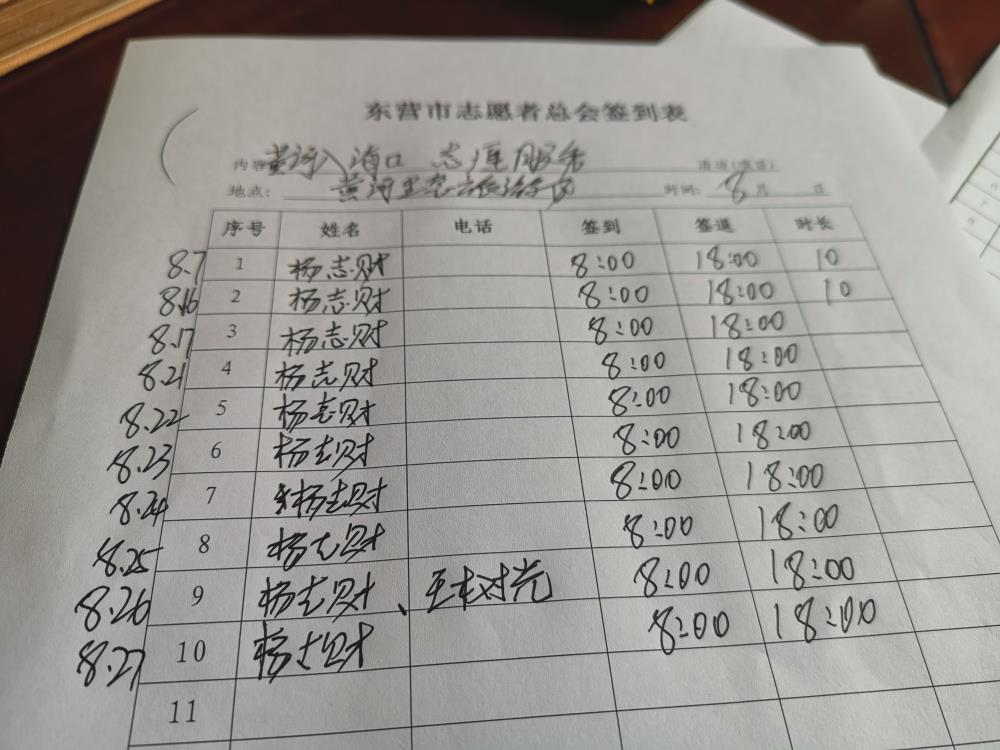 东营市志愿者总会签到表
内容 黄河入海口 志愿服务 活动(项目)
地点: 黄河生态旅游区 时间: 8月 日
序号 姓名 电话 签到 签退 时长
8.7 1 杨志财 8:00 18:00 10
8.16 2 杨志财 8:00 18:00 10
8.17 3 杨志财 8:00 18:00
8.21 4 杨志财 8:00 18:00
8.22 5 杨志财 8:00 18:00
8.23 6 杨志财 8:00 18:00
8.24 7 杨志财 8:00 18:00
8.25 8 杨志财 8:00 18:00
8.26 9 杨志财、 8:00 18:00
8.27 10 杨志财 8:00 18:00
11